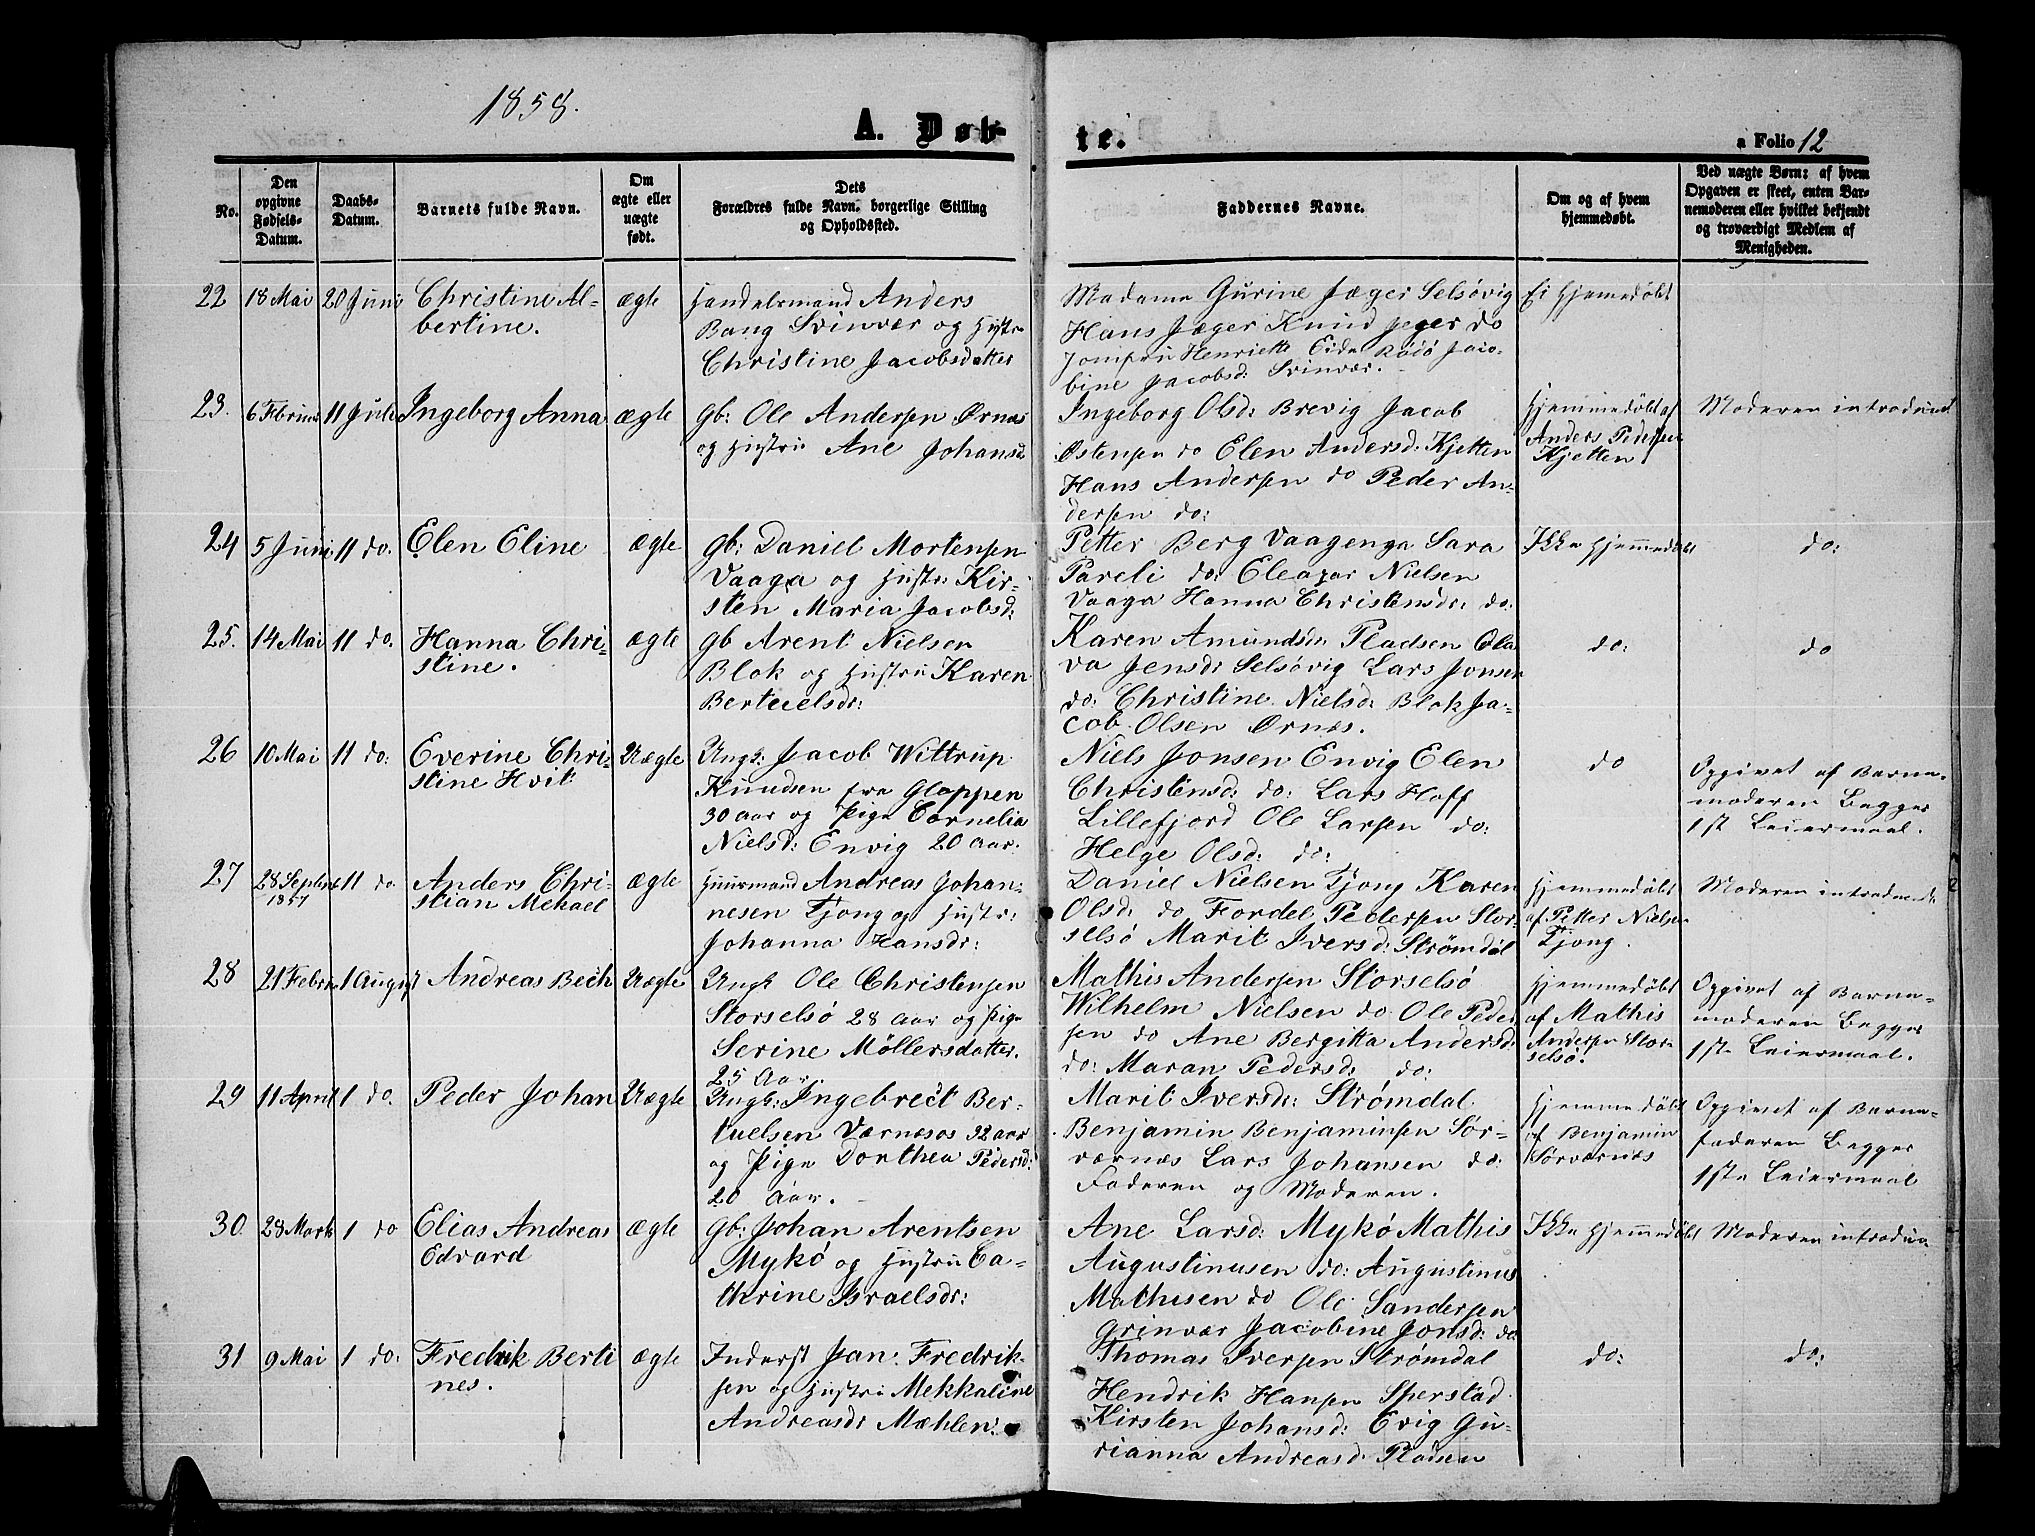 1858.
A. Døb-
te.
a Folio 12
No.
Den opgivne Fødsels-Datum.
Daabs-Datum.
Barnets fulde Navn.
Om ægte eller uægte født.
Dets Forældres fulde Navn, borgerlige Stilling og Opholdssted.
Faddernes Navne.
Om og af hvem hjemmedøbt.
Ved uægte Børn: af hvem Opgaven er skeet, enten Barnemoderen eller hvilket bekjendt og troværdigt Medlem af Menigheden.
22 18 Mai 20 Juni Christine Al-
bertine.
ægte
Handelsmand Anders
Bang Svinvær og Hustru
Christine Jacobsdatter
Madame Gurine Jæger Selsøvig
Hans Jæger Knud Jeger do
Jomfru Henriette Eide Rödö Jaco-
bine Jacobsd: Svinvær.
Ei Hjemedøbt
23. 6 Februar 11 Juli Ingeborg Anna
ægte
gb: Ole Andersen Ørnæs
og Hustru Ane Johansd
Ingeborg Olsd: Brevig Jacob
Østensen do Elen Andersd: Kjetten
Hans Andersen do Peder An-
dersen do:
Hjemmedöbt af
Anders Pedersen
Kjetten
Moderen introduc
24 5 Juni 11 do. Elen Eline
ægte
gb: Daniel Mortensen
Vaaga og Hustr: Kir-
sten Maria Jacobsd:
Petter Berg Vaagenga Sara
Pareli do: Eleazar Nielsen
Vaaga Hanna Christensdr: do:
Ikke Hjemmedøbt
do:
25. 14 Mai 11 do. Hanna Chri-
stine.
ægte
gb Arent Nielsen
Blok og Hustru Karen
Berteielsdr:
Karen Amundsdr Pladsen Ola
va Jensdr Selsövig Lars Jonsen
do: Christine Nielsd: Blok Ja-
cob Olsen Ørnæs.
do:
do
26 10 Mai 11 do: Everine Chri-
stine Hvit
Uægte
Ungk: Jacob Wittrup
Knudsen fra Gloppen
30 aar og Pige Cornelia
Nielsd: Envig 20 aar.
Niels Jonsen Envig Elen
Christensd: do: Lars Hoff
Lillefjord Ole Larsen do:
Helge Olsd: do:
do
Opgivet af Barne-
moderen Begges
1st Leiermaal.
27 28 Septbr 11 do. Anders Chri-
1857
stian Mekael
ægte
Huusmand Andreas Johan-
nesen Tjong og Hustr:
Johanna Hansdr:
Daniel Nielsen Tjong Karen
Olsd: do Fordel Pedersen Stor-
selsö Marit Iversd: Strömdal
Hjemmedöbt
af Petter Nielsen
Tjong.
Moderen introduced
28 21 Febru 1 August Andreas Bech
Uægte
Ungk Ole Christensen
Storselsö 28 aar og Pige
Serine Möllersdatter.
25 Aar
Mathis Andersen Storselsö
Wilhelm Nielsen do Ole Peder
sen do Ane Bergitta Andersd:
do: Maran Pedersd: do:
Hjemmedöbt
af Mathis
Andersen Stor-
selsö.
Opgivet af Barne-
moderen Begges
1ste Leiermaal.
29 11 April 1 do. Peder Johan
Uægte
Ungk: Ingebrect Ber-
tuelsen Værnæsos 32 aar
og Pige Dorthea Pedersd:
20 Aar.
Marit Iversdr: Strømdal
Benjamin Benjaminsen Sör-
værnæs Lars Johansen do:
Faderen og Moderen.
Hjemmedöbt
af Benjamin
Sörværnæs
Opgivet af Barne-
faderen Begges
1ste Leiermaal
30. 28 Marts 1 do Elias Andreas
Edvard
ægte
gb: Johan Arentsen
Mykö og Hustru Ca-
thrine Israelsdr:
Ane Larsd: Mykö Mathis
Augustinusen do: Augustinus
Mathisen do Ole Sandersen
Grinvær Jacobine Jonsd: do:
Ikke Hjemmedøbt
Moderen introduce
31 9 Mai 1 do: Fredrik Berti
nes.
ægte
Inderst Jan Fredrik-
sen og Hustru Mekkaline
Andreasdr Mæhlen:
Thomas Iversen Strømdal
Hendrik Hansen Sperstad
Kirsten Johansd: Evig Gu-
rianna Andreasd. Pladsen
do:
do: